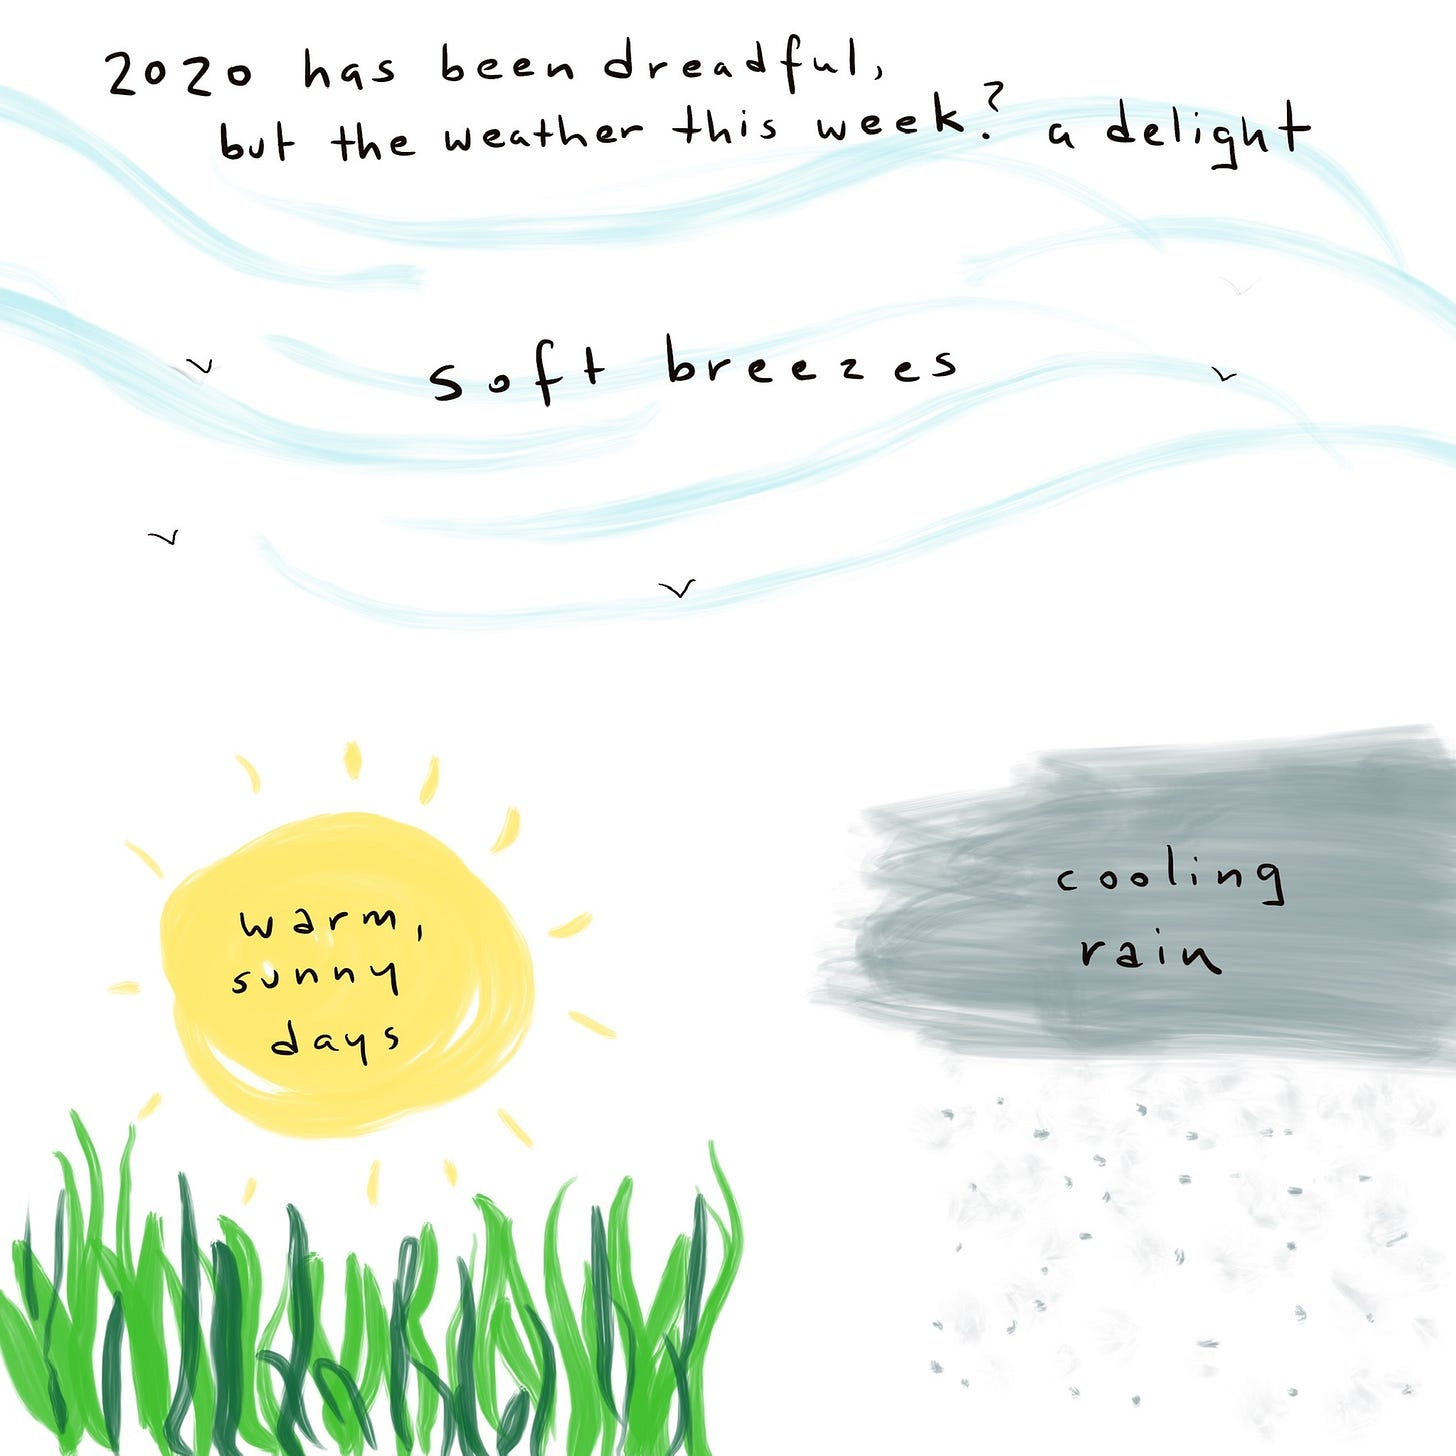 2020 has been dreadful,
but the weather this week? a delight
soft breezes
warm,
sunny
days
cooling
rain